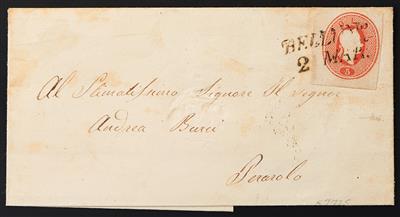 BELLUNO
2 MAR.
5
Al Stimatissimo Signore Il Signor
Andrea
Perarolo